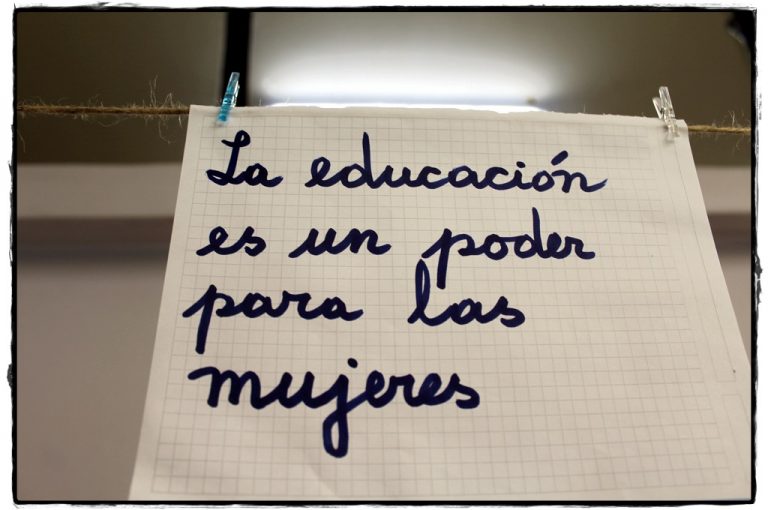 La educación
es un poder
para las
mujeres